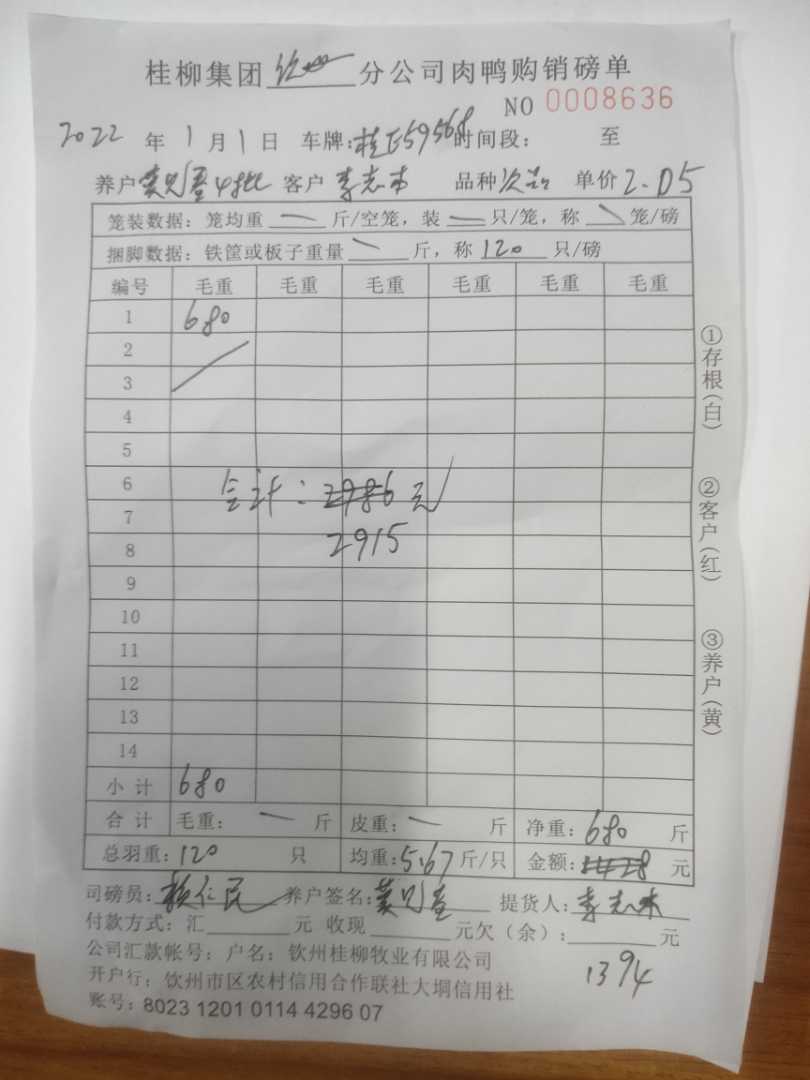 桂柳集团 钦州 分公司肉鸭购销磅单
NO 0008636
2022 年 1 月 1 日 车牌: 桂 59568 时间段: 至
养户 4批 客户 李志 品种 次品 单价 2.05
笼装数据: 笼均重 — 斤/空笼, 装 — 只/笼, 称 — 笼/磅
捆脚数据: 铁筐或板子重量 — 斤, 称 120 只/磅
编号 毛重 毛重 毛重 毛重 毛重 毛重
1 680
2
3
4
5
6 合计: 2986 元
7
8 2915
9
10
11
12
13
14
小计 680
合计 毛重: — 斤 皮重: — 斤 净重: 680 斤
总羽重: 120 只 均重: 5.67 斤/只 金额: 元
司磅员: 赖仁民 养户签名: 提货人: 李志
付款方式: 汇 元 收现 元欠(余): 元
公司汇款帐号: 户名: 钦州桂柳牧业有限公司
1394
开户行: 钦州市区农村信用合作联社大垌信用社
账号: 8023 1201 0114 4296 07
①存根(白)
②客户(红)
③养户(黄)